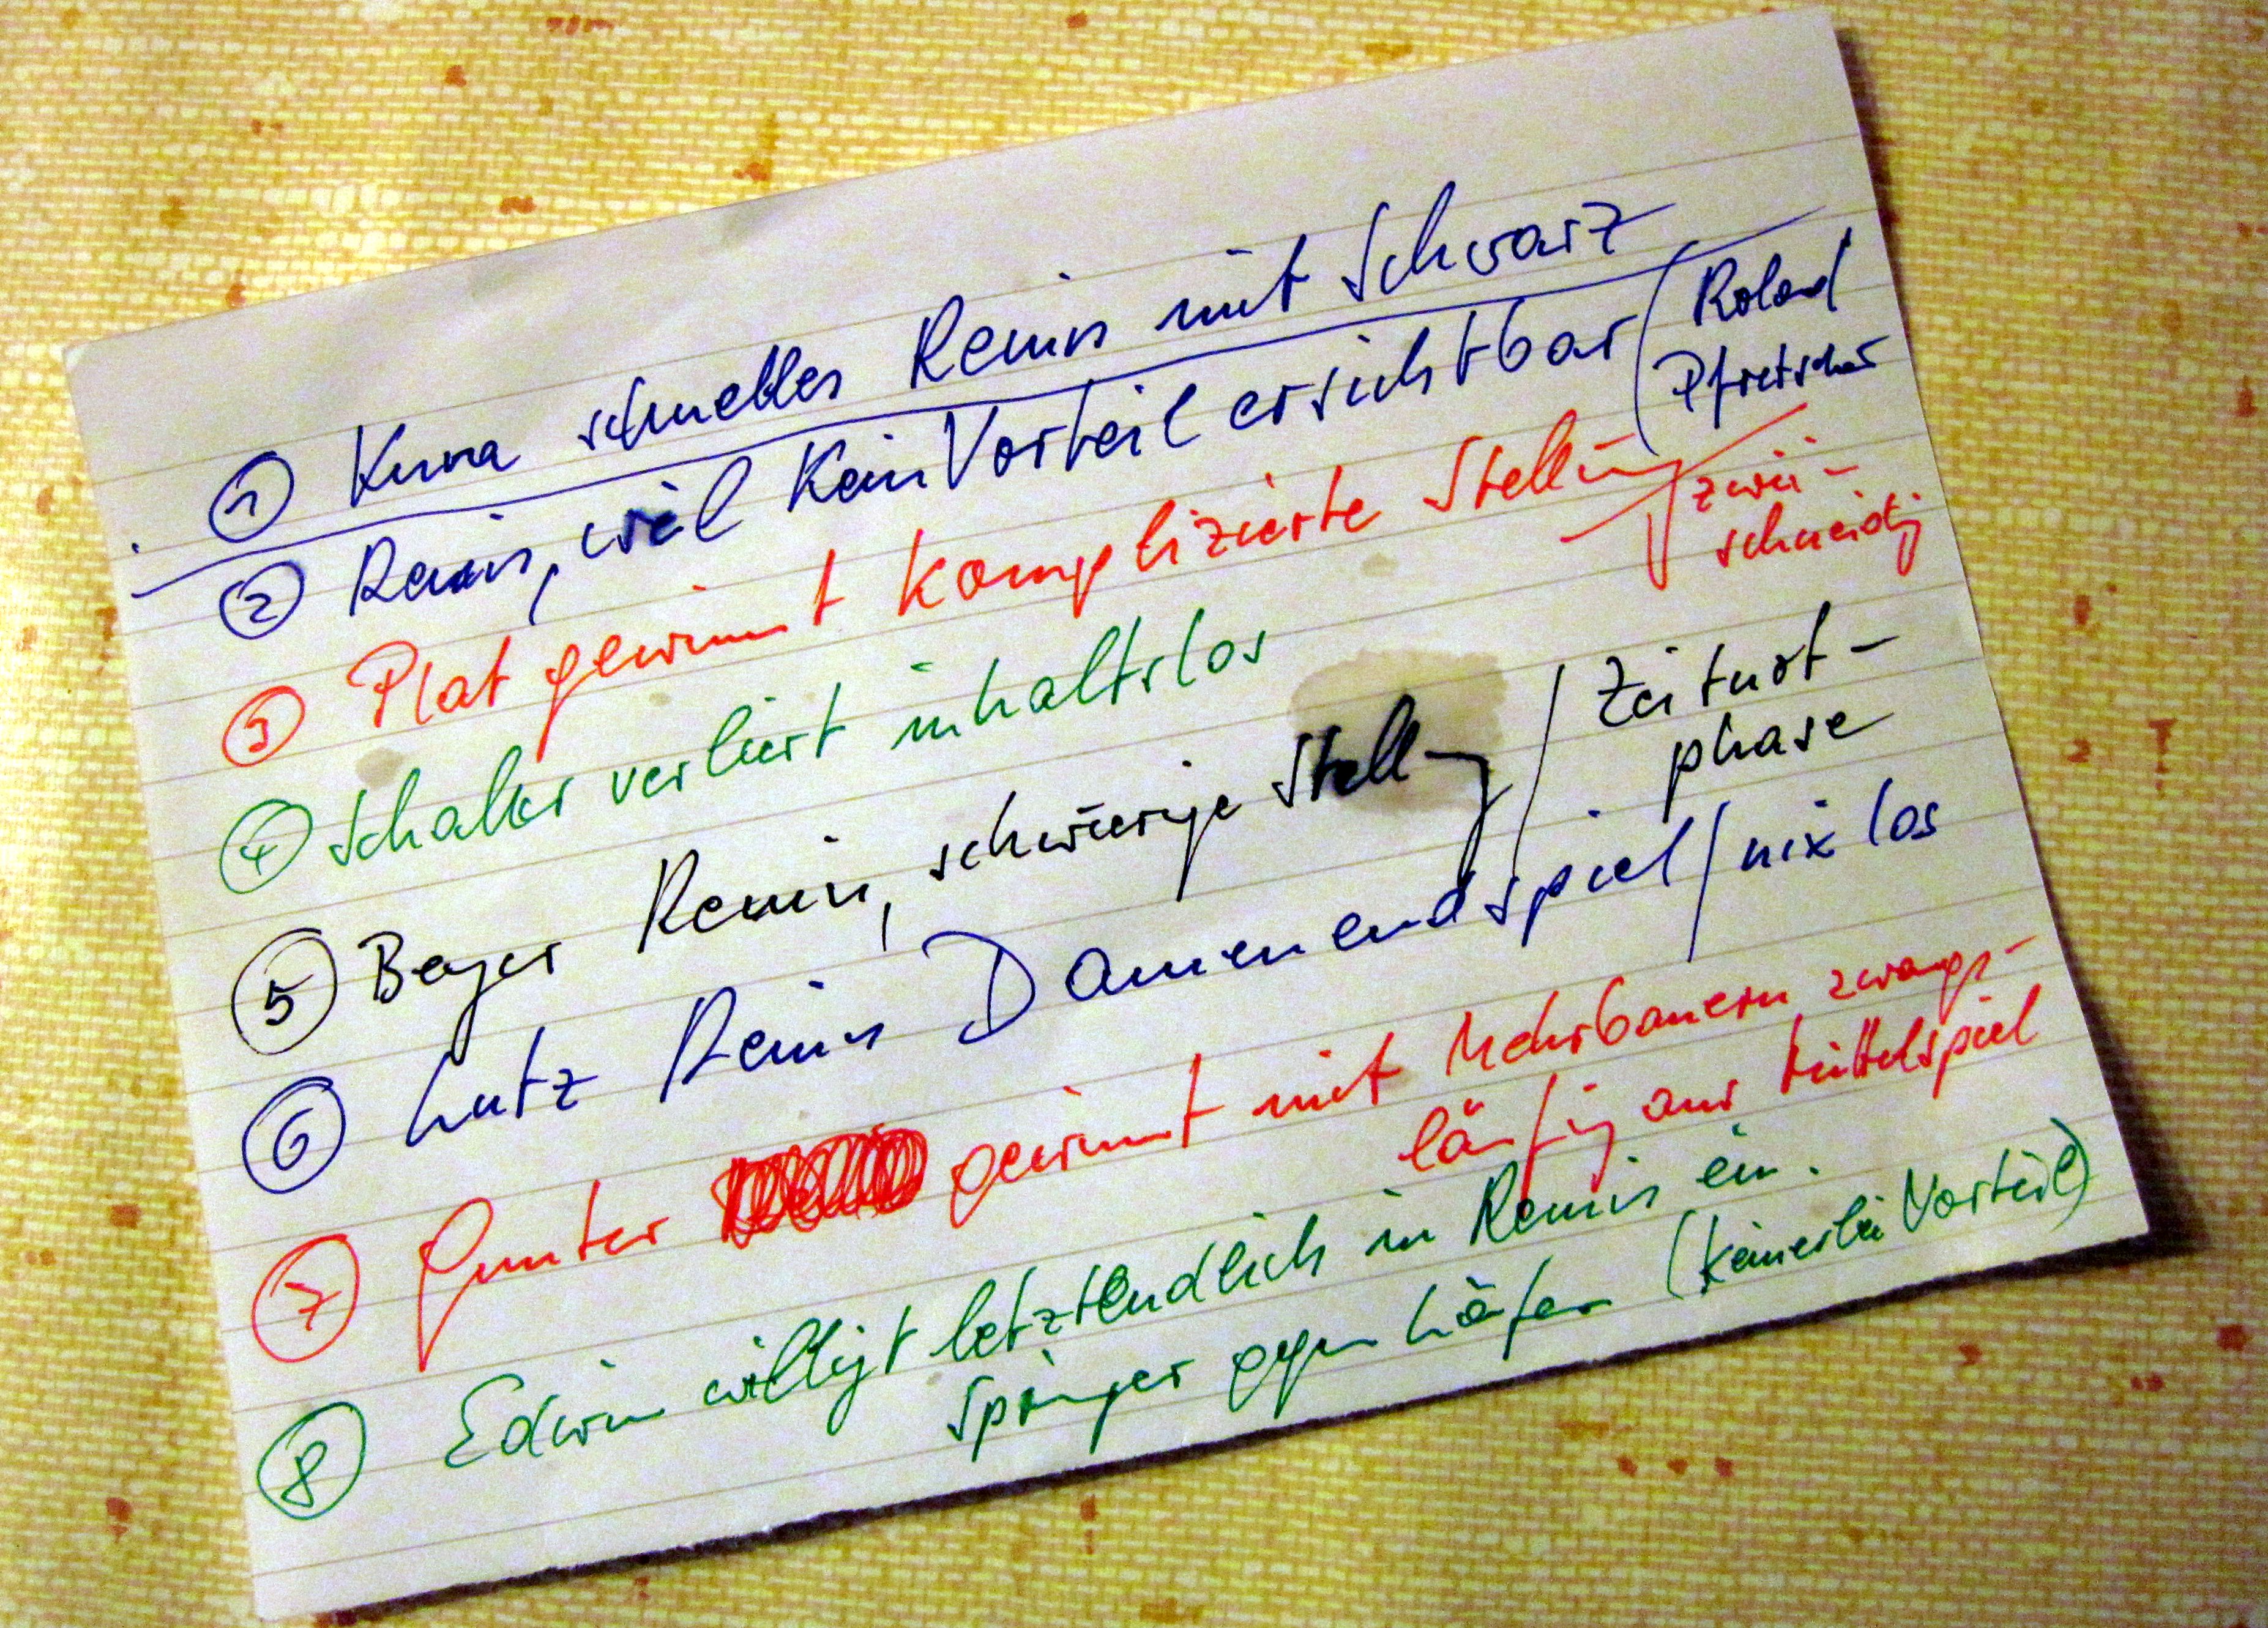 ① Kunna schnelles Remis mit Schwarz
② Remis, weil kein Vorteil ersichtbar (Roland
Pfretschner
③ Plat gewinnt komplizierte Stellung / zwei-
schneidig
④ Schaller verliert inhaltslos
⑤ Beyer Remis, schwierige Stellung / Zeitnot-
phase
⑥ Lutz Remis Damenendspiel / nix los
⑦ Gunter gewinnt mit Mehrbauern zwangs-
läufig aus Mittelspiel
⑧ Edwin willigt letztendlich in Remis ein.
Springer gegen Läufer (keinerlei Vorteil)